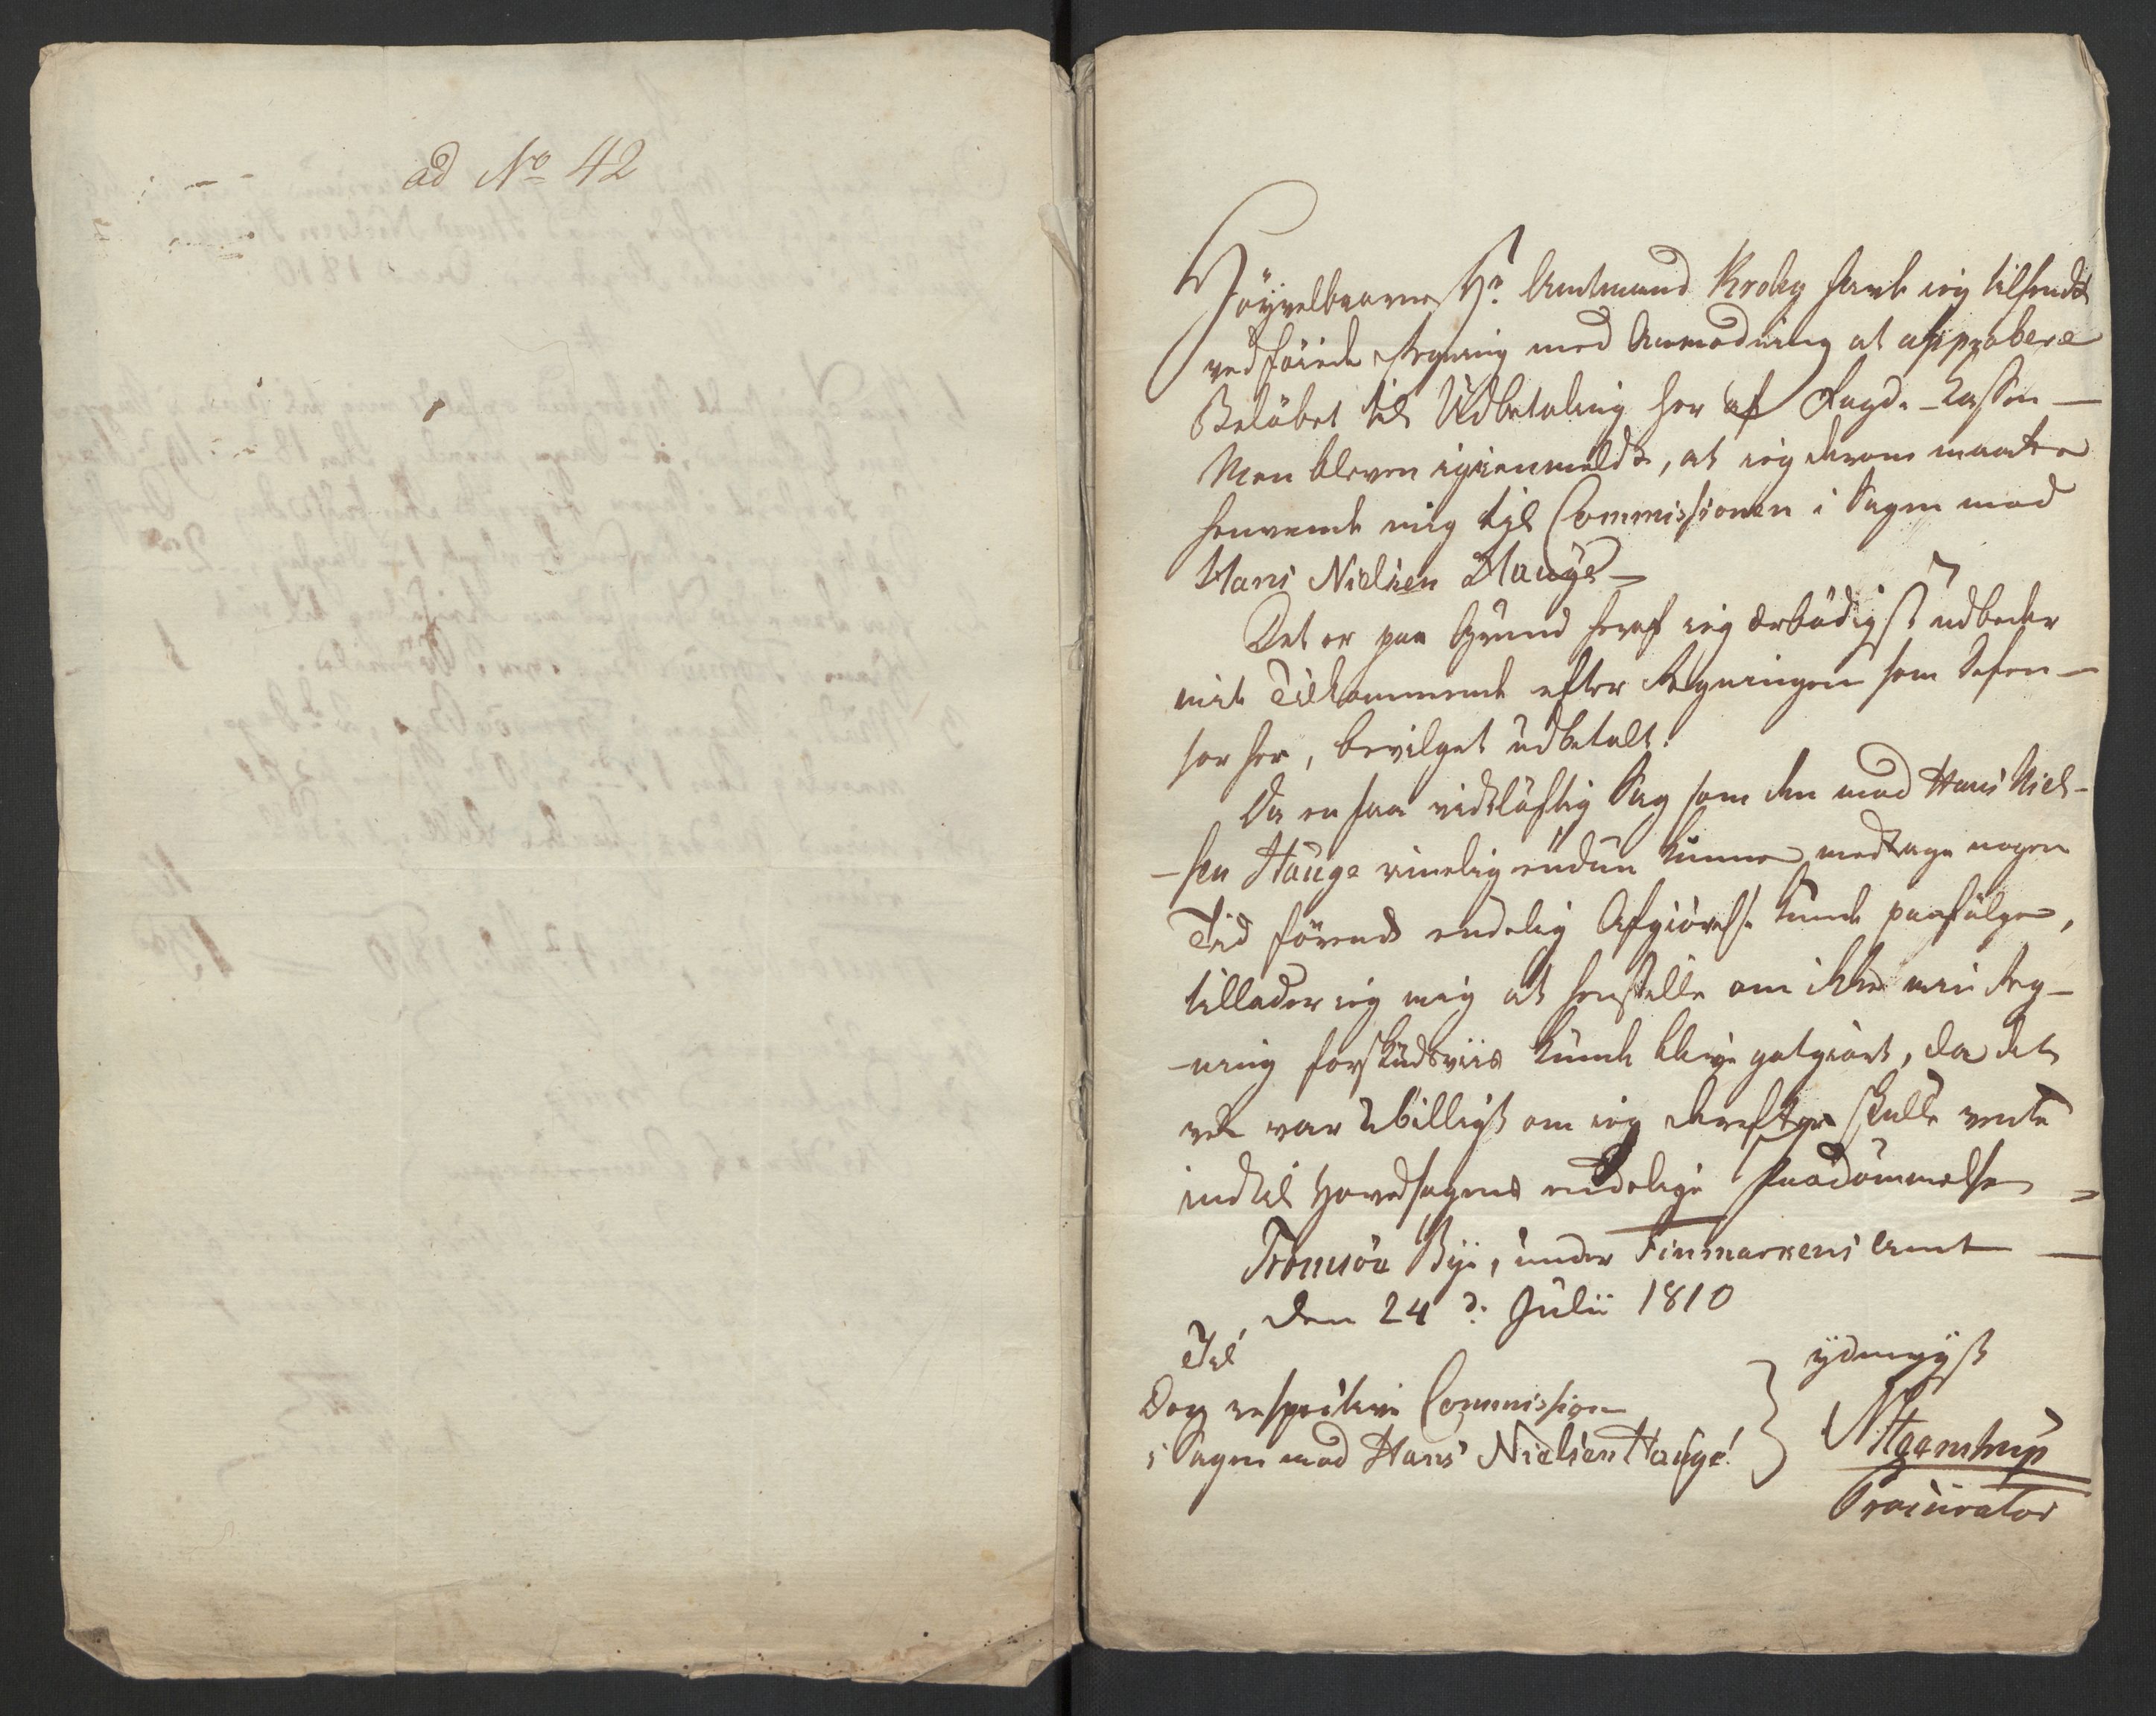 ad No 42
Höyvelbaarne Hr. Amtmand Krog havde ieg tilsendt
vedföiede Regning med Anmodning at approbere
Belöbet til Udbetaling her af Fogd-Cassen —
Men bleven igienmeldt, at ieg derom maatte
henvende mig til Commissionen i Sagen mod
Hans Nielsen Hauge —
Det er paa Grund heraf ieg ærbödigst udbeder
mit Tilkommende efter Regningen som Defen-
sor her, bevilget udbetalt.
Da en saa vidtlöftig Sag som den mod Hans Niel-
-sen Hauge rimelig endnu kunne medtage nogen
Tid förend endelig Afgiörelse kunde paafölge,
tillader ieg mig at henstille om ikke min Reg-
-ning forskudsviis kunde blive godgiort, da det
vel var ubilligt om ieg derefter skulle vente
indtil Hovedsagens endelige Paadömmelse =
Tromsöe Bye, under Finmarkens Amt —
den 24 d. Julii 1810
Til
Den respective Commission
i Sagen mod Hans Nielsen Hauge!
ydmygst
Procurator